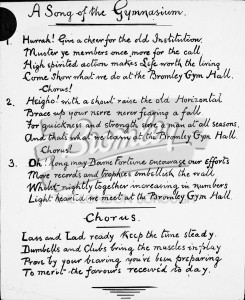 A Song of the Gymnasium.
1. Hurrah! Give a cheer for the old Institution,
Muster ye members once more for the call
High spirited action makes Life worth the living
Come show what we do at the Bromley Gym Hall.
Chorus!
2. Heigho! with a shout raise the old Horizontal
Brace up your nerve never fearing a fall
For quickness and strength serve a man at all seasons,
And that's what we learn at the Bromley Gym Hall.
Chorus!
3. Oh! long may Dame Fortune encourage our efforts
More records and trophies embellish the wall
Whilst nightly together increasing in numbers
Light hearted we meet at the Bromley Gym Hall.
Chorus.
Lass and Lad ready Keep the time steady.
Dumbells and Clubs bring the muscles in play
Prove by your bearing you've been preparing
To merit the favours received to day.